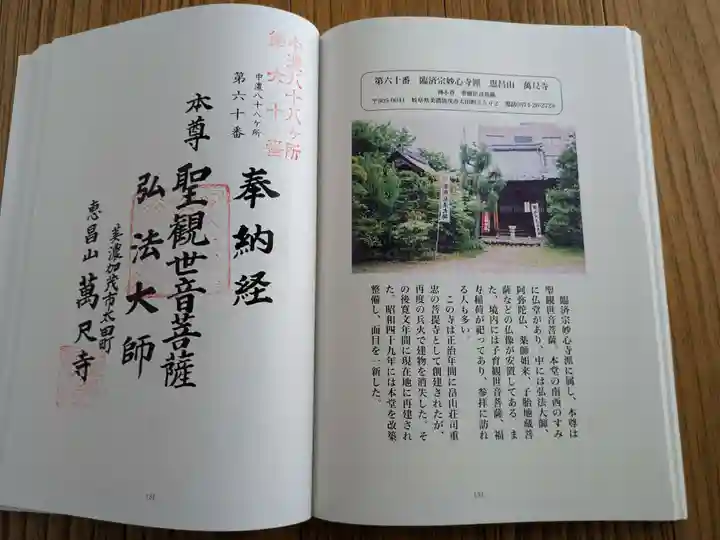 中濃八十八ヶ所
第六十番
中濃八十八ヶ所
第六十番
奉納経
本尊 聖観世音菩薩
弘法大師
美濃加茂市太田町
恵昌山 萬尺寺
第六十番 臨済宗妙心寺派 恵昌山 萬尺寺
臨済宗妙心寺派に属し、本尊は
聖観世音菩薩。本堂の南西のすみ
に仏堂があり、中には弘法大師、
阿弥陀仏、薬師如来、子胎地蔵菩
薩などの仏像が安置してある。ま
た、境内には子育観世音菩薩、福
寿稲荷が祀ってあり、参拝に訪れ
る人も多い。
この寺は正治年間に畠山荘司重
忠の菩提寺として創建されたが、
再度の兵火で建物を消失した。そ
の後寛文年間に現在地に再建され
た。昭和四十九年には本堂を改築
整備し、面目を一新した。